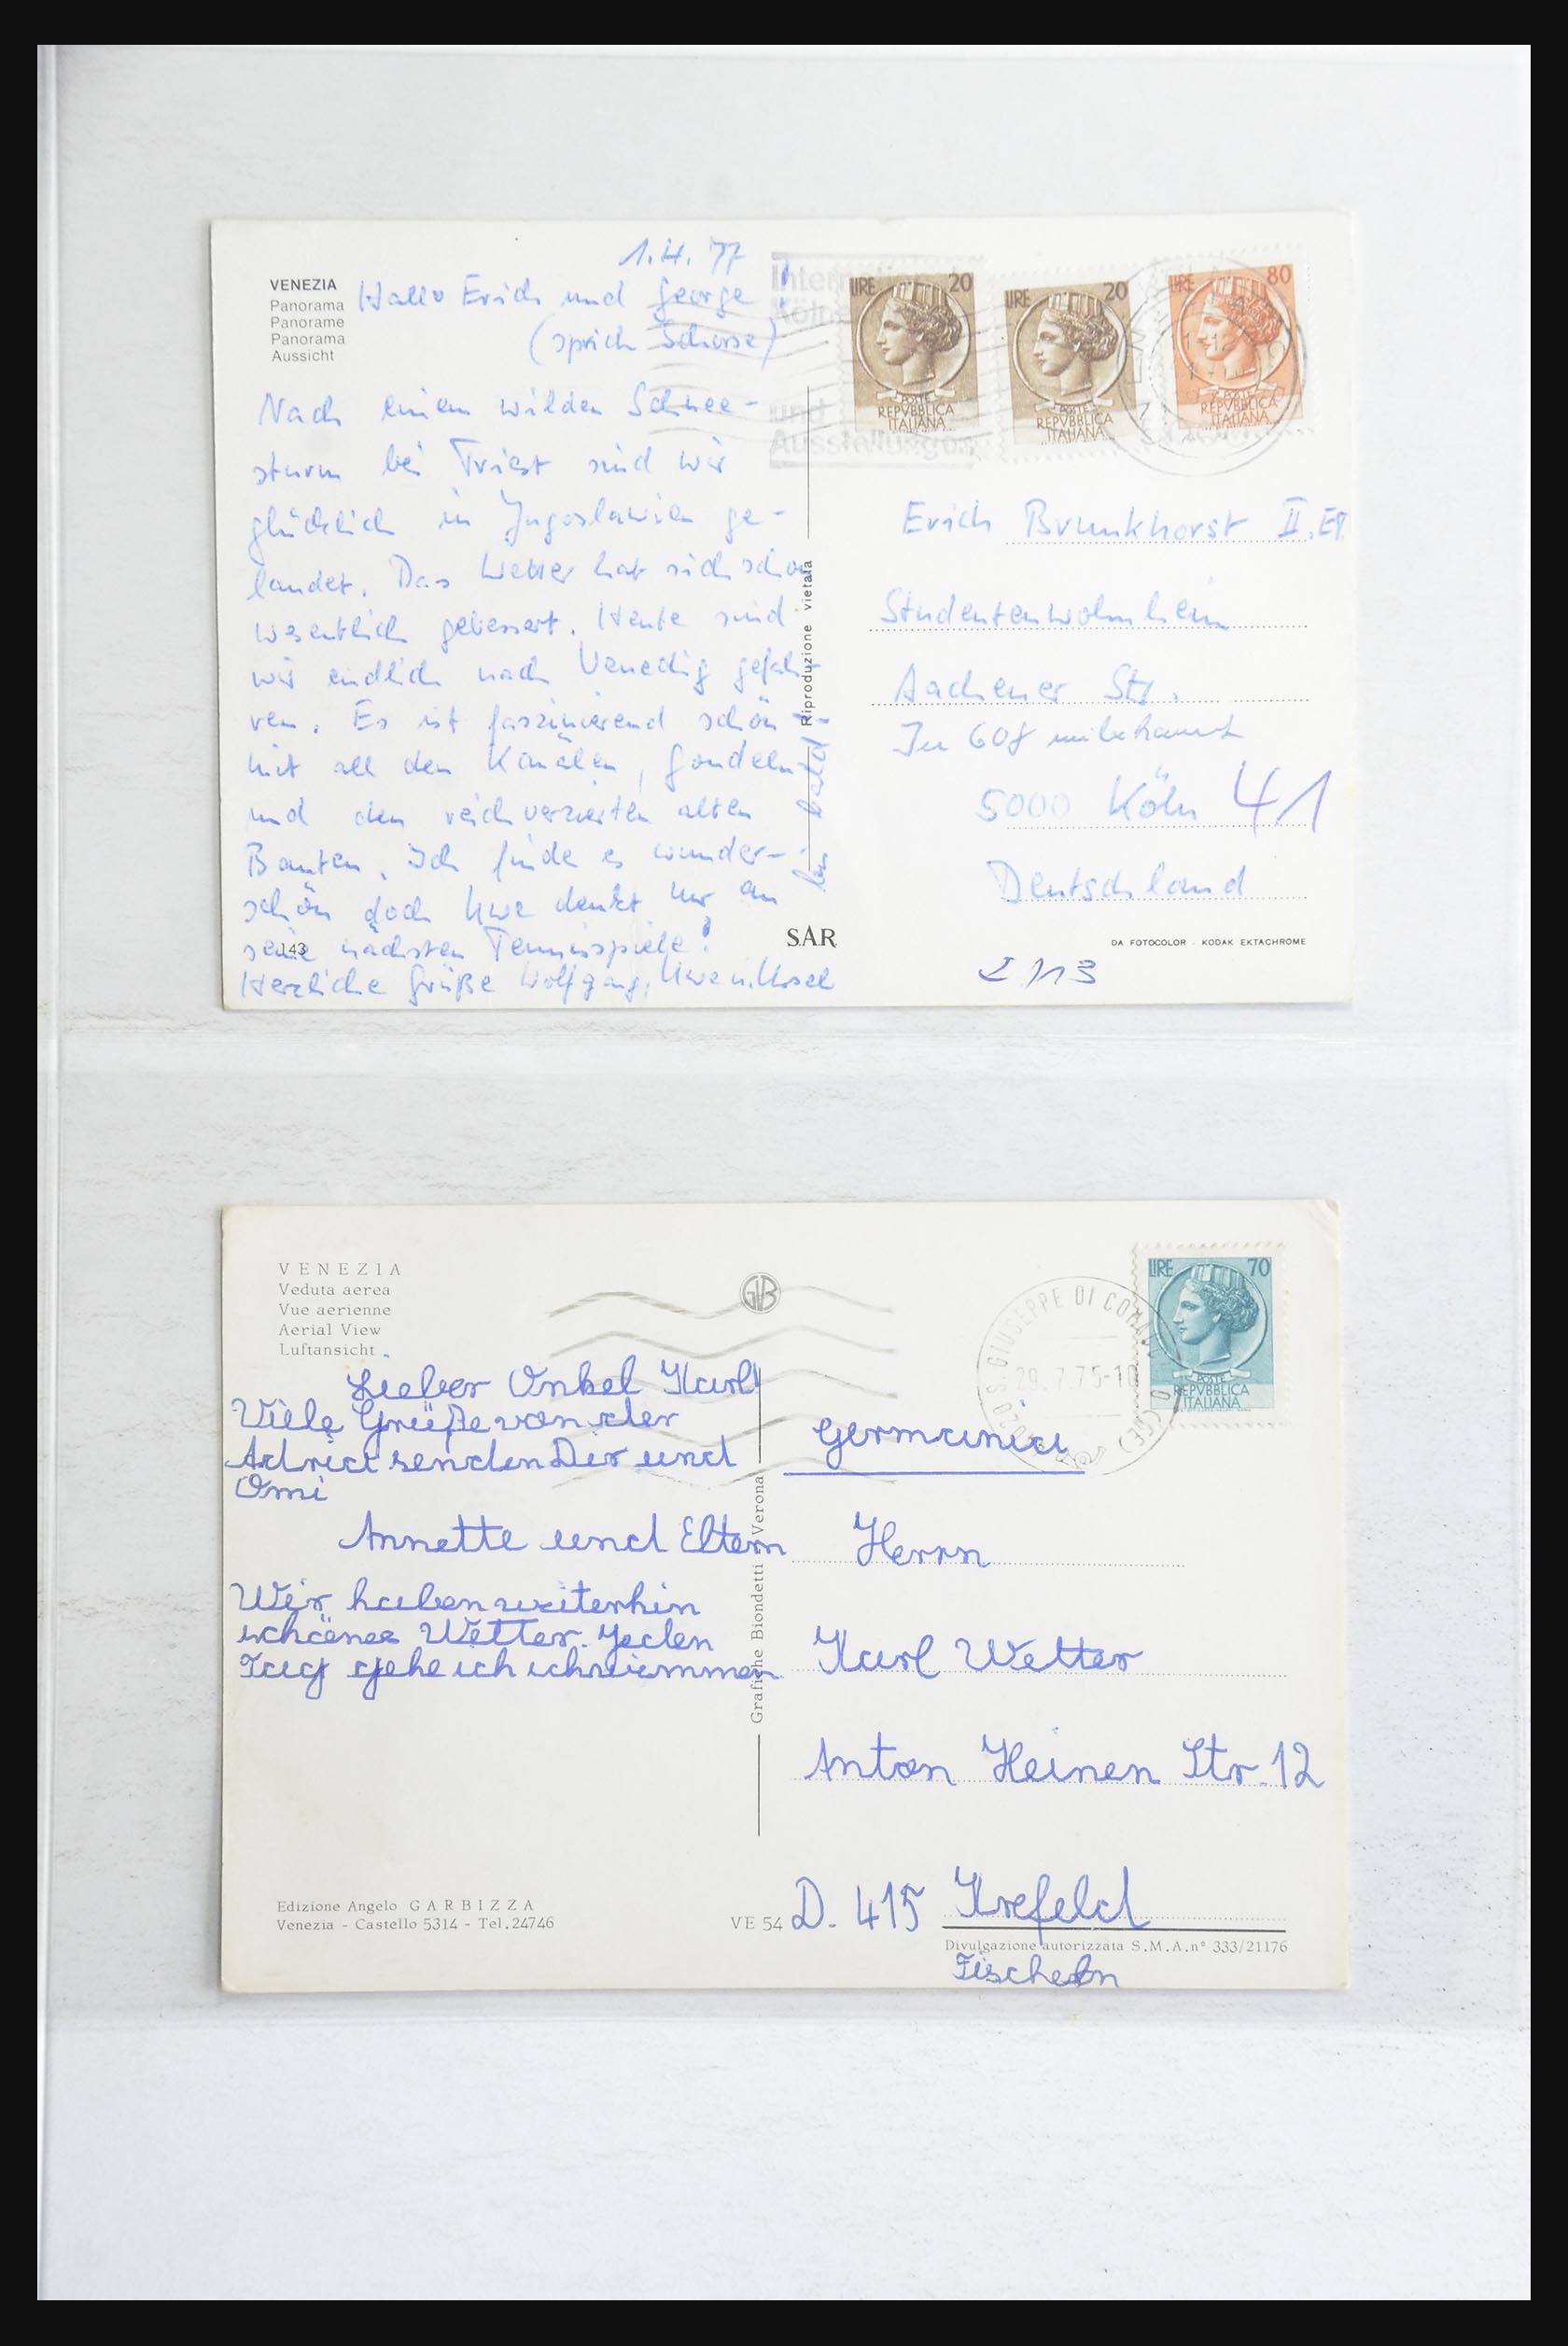 1.4.77
VENEZIA
Panorama
Panorame
Panorama
Aussicht
Hallo Erich und George!
(sprich Schorse)
Nach einem wilden Schnee-
sturm bei Triest sind wir
glücklich in Jugoslawien ge-
landet. Das Wetter hat sich schon
wesentlich gebessert. Heute sind
wir endlich nach Venedig gefah-
ren. Es ist faszinierend schön
mit all den Kanälen, Gondeln
und den reich verzierten alten
Bauten. Ich finde es wunder-
schön doch Uwe denkt nur an
seine nächsten Tennisspiele!
Herzliche Grüße Wolfgang, Uwe u. Ursel
bis bald!
143
Riproduzione vietata
SAR
Internation
Köln
und
Ausstellungo
LIRE 20
POSTE
REPVBBLICA
ITALIANA
LIRE 20
POSTE
REPVBBLICA
ITALIANA
LIRE 80
REPVBBLICA
ITALIANA
Erich Brunkhorst II. Et.
Studentenwohnheim
Aachener Str.
In 608 unbekannt
5000 Köln 41
Deutschland
DA FOTOCOLOR - KODAK EKTACHROME
VENEZIA
Veduta aerea
Vue aerienne
Aerial View
Luftansicht
GB
Lieber Onkel Karl!
Viele Grüße von der
Adria senden Dir und
Omi
Annette und Eltern
Wir haben weiterhin
schönes Wetter. Jeden
Tag gehe ich schwimmen
Edizione Angelo GARBIZZA
Venezia - Castello 5314 - Tel. 24746
Grafiche Biondetti Verona
VE 54
S. GIUSEPPE DI
29.7.75-10
(VE)
LIRE 70
POSTE
REPVBBLICA
ITALIANA
Germania
Herrn
Karl Wetter
Anton Heinen Str. 12
D. 415 Krefeld
Divulgazione autorizzata S.M.A. n° 333/21176
Fischeln